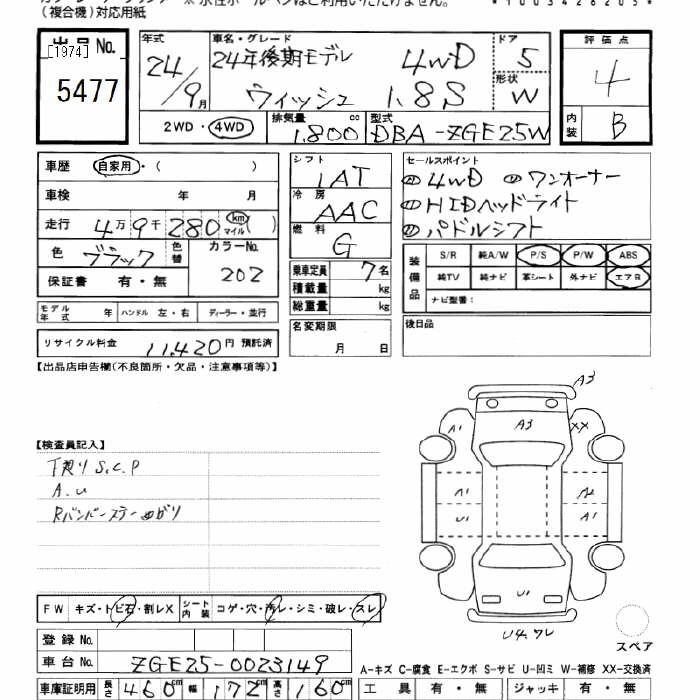 (複合機)対応用紙
出品No.
[1974]
5477
年式
24/9月
車名・グレード
24年後期モデル 4WD
ウィッシュ 1.8S
ドア
5
形状
W
評価点
4
内装
B
2WD・4WD
排気量
1,800cc
型式
DBA-ZGE25W
車歴 自家用・( )
車検 年 月
走行 4万9千280 km マイル( )
色 ブラック 色替
カラーNo.
202
保証書 有・無
シフト
IAT
冷房
AAC
燃料
G
乗車定員 7名
積載量 kg
総重量 kg
名変期限
月 日
セールスポイント
4WD ワンオーナー
HIDヘッドライト
パドルシフト
装備品
S/R 純A/W P/S P/W ABS
純TV 純ナビ 革シート 外ナビ エアB
ナビ型番:
後日品
モデル年式 年 ハンドル 左・右 ディーラー・並行
リサイクル料金 11,420円 預託済
【出品店申告欄(不良箇所・欠品・注意事項等)】
【検査員記入】
下廻り S.C.P
A.U
Rバンパーステー曲がり
A3
A1 A3 XX
A1 A2
U1 A1
U1
U4.ワレ
スペア
FW キズ・トビ石・割レX シート内装 コゲ・穴・汚レ・シミ・破レ・スレ
登録No.
車台No. ZGE25-0023149
A-キズ C-腐食 E-エクボ S-サビ U-凹ミ W-補修 XX-交換済
車庫証明用 長さ 460cm 幅 172cm 高さ 160cm
工具 有・無 ジャッキ 有・無